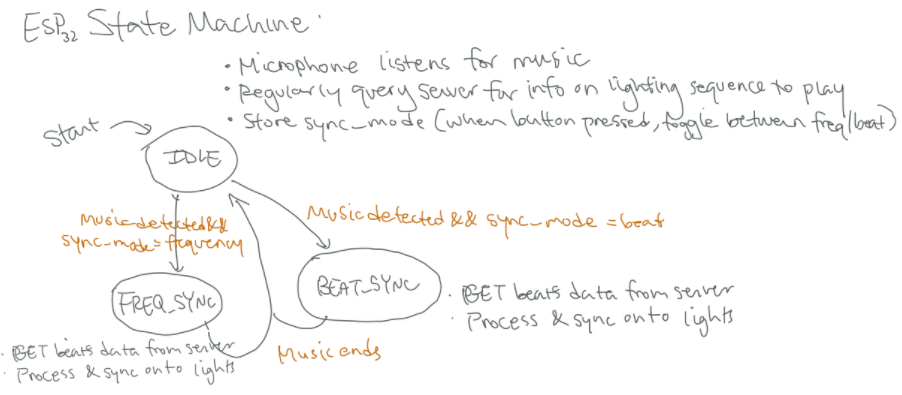 ESP32 State Machine:
• Microphone listens for music
• Regularly query server for info on lighting sequence to play
• Store sync_mode (when button pressed, toggle between freq/beat)
Start
IDLE
Music detected && sync_mode = frequency
Music detected && sync_mode = beat
FREQ_SYNC
• GET beats data from server
• Process & sync onto lights
BEAT_SYNC
• GET beats data from server
• Process & sync onto lights
Music ends